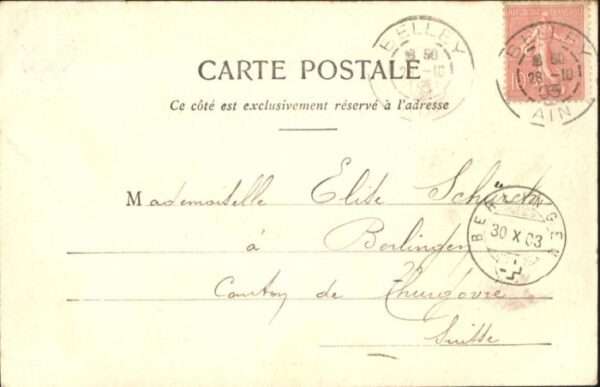 BELLEY
50
28 -10
03
AIN
BELLEY
50
28 -10
03
AIN
CARTE POSTALE
Ce côté est exclusivement réservé à l'adresse
Mademoiselle Elise Schürch
à Berlingen
BERLINGEN
30 X 03
Canton de Thurgovie
Suisse